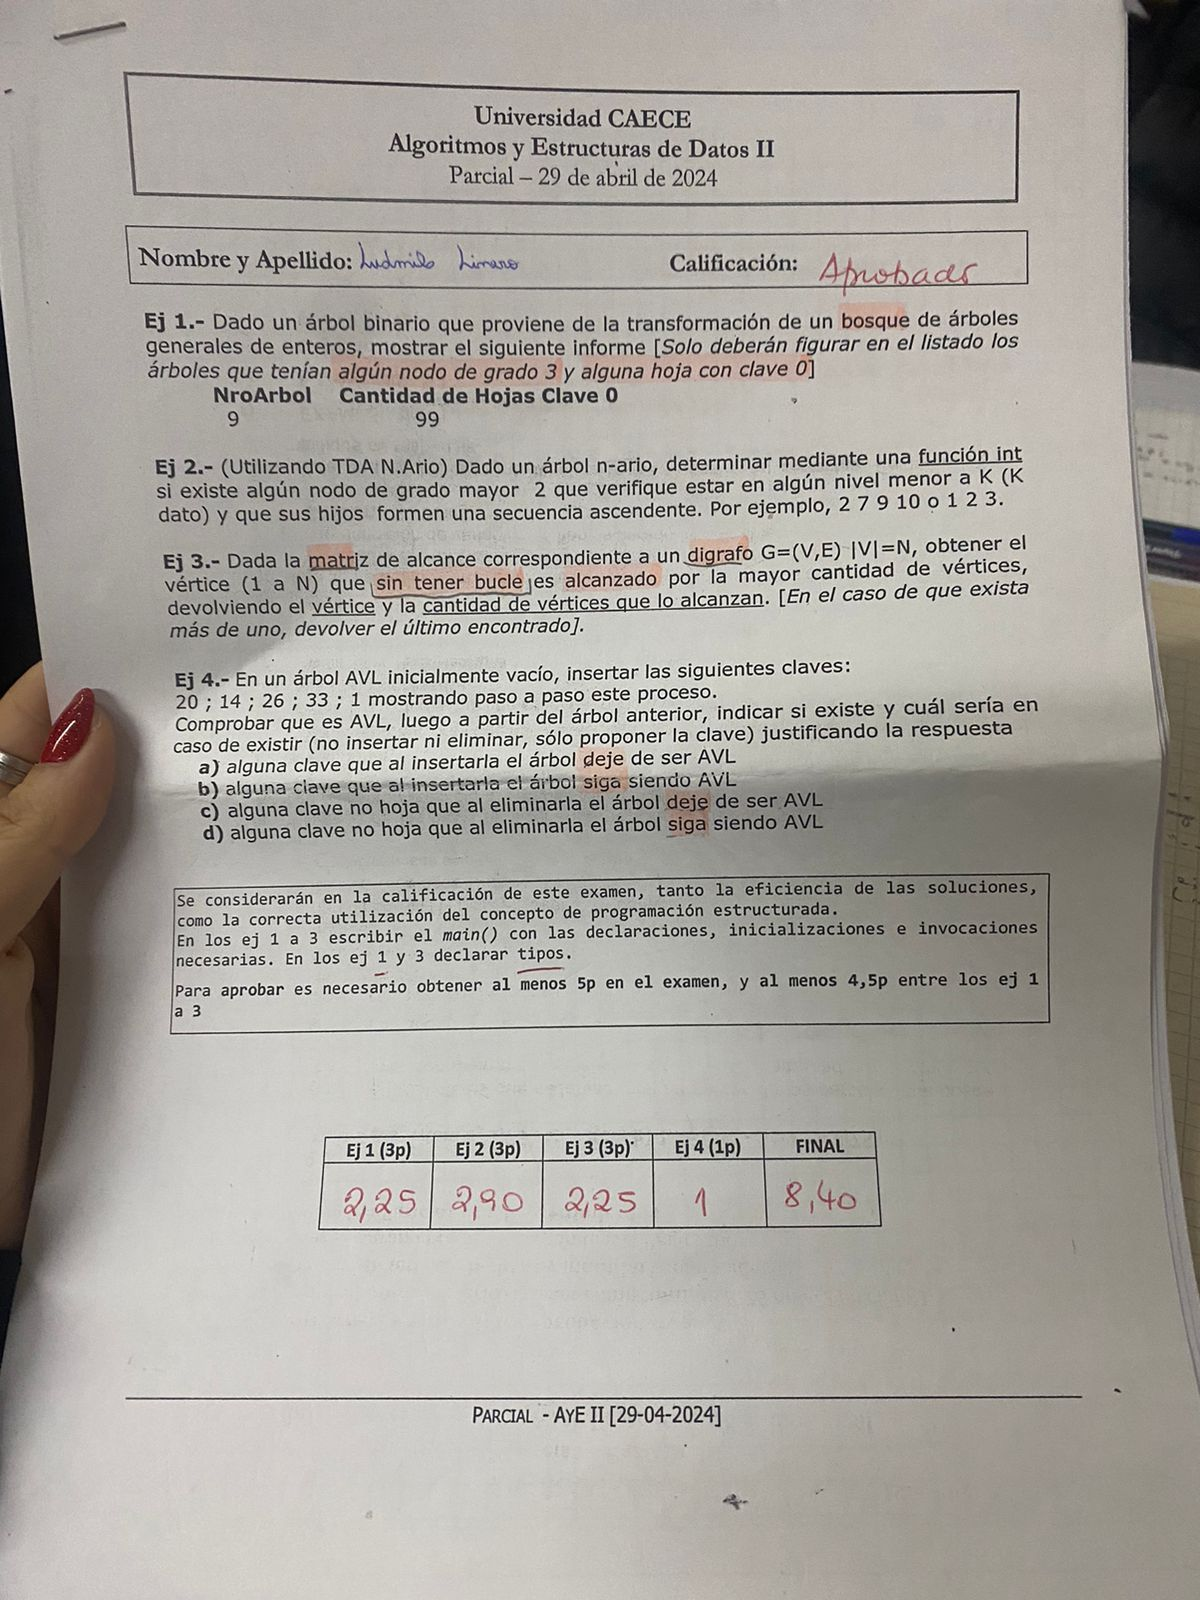 Universidad CAECE
Algoritmos y Estructuras de Datos II
Parcial – 29 de abril de 2024
Nombre y Apellido: Ludmila Linaro Calificación: Aprobado
Ej 1.- Dado un árbol binario que proviene de la transformación de un bosque de árboles
generales de enteros, mostrar el siguiente informe [Solo deberán figurar en el listado los
árboles que tenían algún nodo de grado 3 y alguna hoja con clave 0]
NroArbol Cantidad de Hojas Clave 0
9 99
Ej 2.- (Utilizando TDA N.Ario) Dado un árbol n-ario, determinar mediante una función int
si existe algún nodo de grado mayor 2 que verifique estar en algún nivel menor a K (K
dato) y que sus hijos formen una secuencia ascendente. Por ejemplo, 2 7 9 10 o 1 2 3.
Ej 3.- Dada la matriz de alcance correspondiente a un digrafo G=(V,E) |V|=N, obtener el
vértice (1 a N) que sin tener bucle es alcanzado por la mayor cantidad de vértices,
devolviendo el vértice y la cantidad de vértices que lo alcanzan. [En el caso de que exista
más de uno, devolver el último encontrado].
Ej 4.- En un árbol AVL inicialmente vacío, insertar las siguientes claves:
20 ; 14 ; 26 ; 33 ; 1 mostrando paso a paso este proceso.
Comprobar que es AVL, luego a partir del árbol anterior, indicar si existe y cuál sería en
caso de existir (no insertar ni eliminar, sólo proponer la clave) justificando la respuesta
a) alguna clave que al insertarla el árbol deje de ser AVL
b) alguna clave que al insertarla el árbol siga siendo AVL
c) alguna clave no hoja que al eliminarla el árbol deje de ser AVL
d) alguna clave no hoja que al eliminarla el árbol siga siendo AVL
Se considerarán en la calificación de este examen, tanto la eficiencia de las soluciones,
como la correcta utilización del concepto de programación estructurada.
En los ej 1 a 3 escribir el main() con las declaraciones, inicializaciones e invocaciones
necesarias. En los ej 1 y 3 declarar tipos.
Para aprobar es necesario obtener al menos 5p en el examen, y al menos 4,5p entre los ej 1
a 3
Ej 1 (3p) Ej 2 (3p) Ej 3 (3p) Ej 4 (1p) FINAL
2,25 2,90 2,25 1 8,40
PARCIAL - AYE II [29-04-2024]